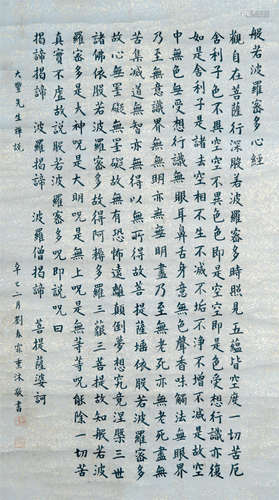 般若波羅蜜多心經
觀自在菩薩行深般若波羅蜜多時照見五蘊皆空度一切苦厄
舍利子色不異空空不異色色即是空空即是色受想行識亦復
如是舍利子是諸法空相不生不滅不垢不淨不增不減是故空
中無色無受想行識無眼耳鼻舌身意無色聲香味觸法無眼界
乃至無意識界無無明亦無無明盡乃至無老死亦無老死盡無
苦集滅道無智亦無得以無所得故菩提薩埵依般若波羅蜜多
故心無罣礙無罣礙故無有恐怖遠離顛倒夢想究竟涅槃三世
諸佛依般若波羅蜜多故得阿耨多羅三藐三菩提故知般若波
羅蜜多是大神咒是大明咒是無上咒是無等等咒能除一切苦
真實不虛故說般若波羅蜜多咒即說咒曰
揭諦揭諦 波羅揭諦 波羅僧揭諦 菩提薩婆訶
大豐先生禪說
辛巳二月劉春霖熏沐敬書